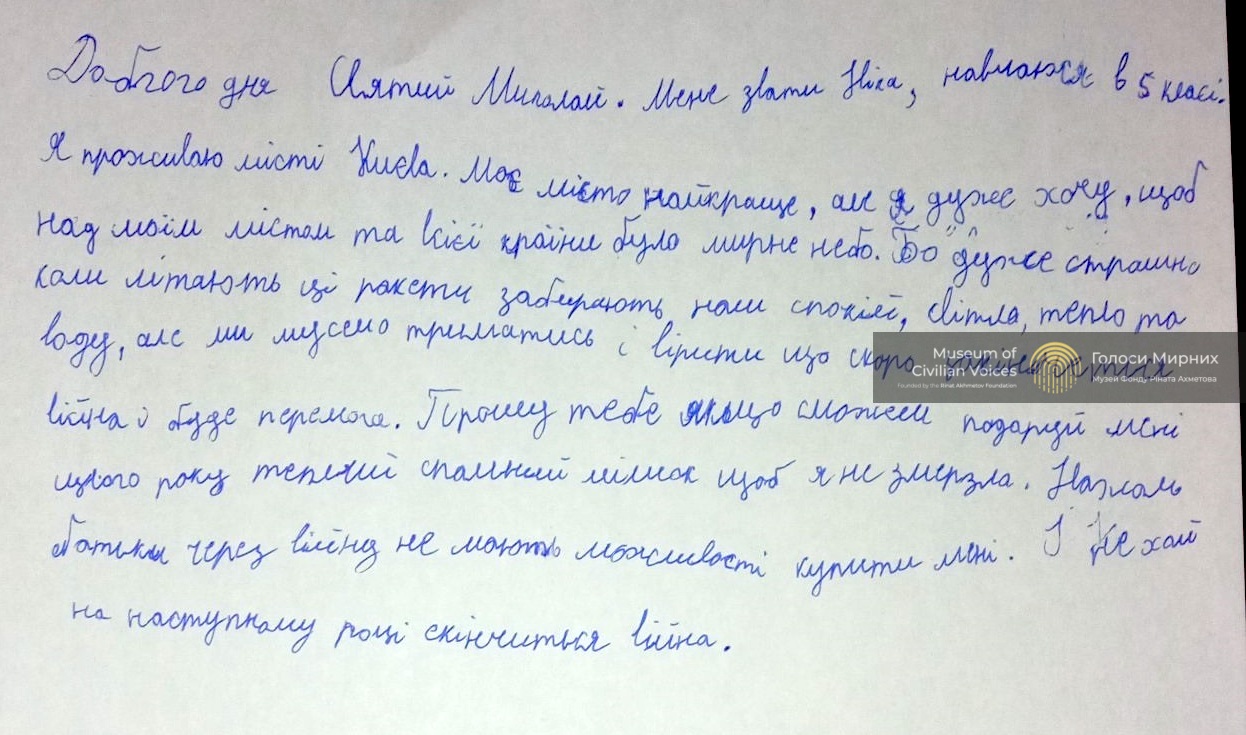 Доброго дня Святий Миколай. Мене звати Ніка, навчаюся в 5 класі.
Я проживаю місті Києва. Моє місто найкраще, але я дуже хочу, щоб
над моїм містом та всієї країни було мирне небо. Бо дуже страшно
коли літають ці ракети забирають наш спокій, світла, тепло та
воду, але ми мусемо триматись і вірити що скоро закінчиться
війна і буде перемога. Прошу тебе якщо зможеш подаруй мені
цього року теплий спальний мішок щоб я не змерзла. Нажаль
батьки через війну не мають можливості купити мені. І Нехай
на наступному році скінчиться війна.
Museum of Civilian Voices
Founded by the Rinat Akhmetov Foundation
Голоси Мирних
Музей Фонду Ріната Ахметова